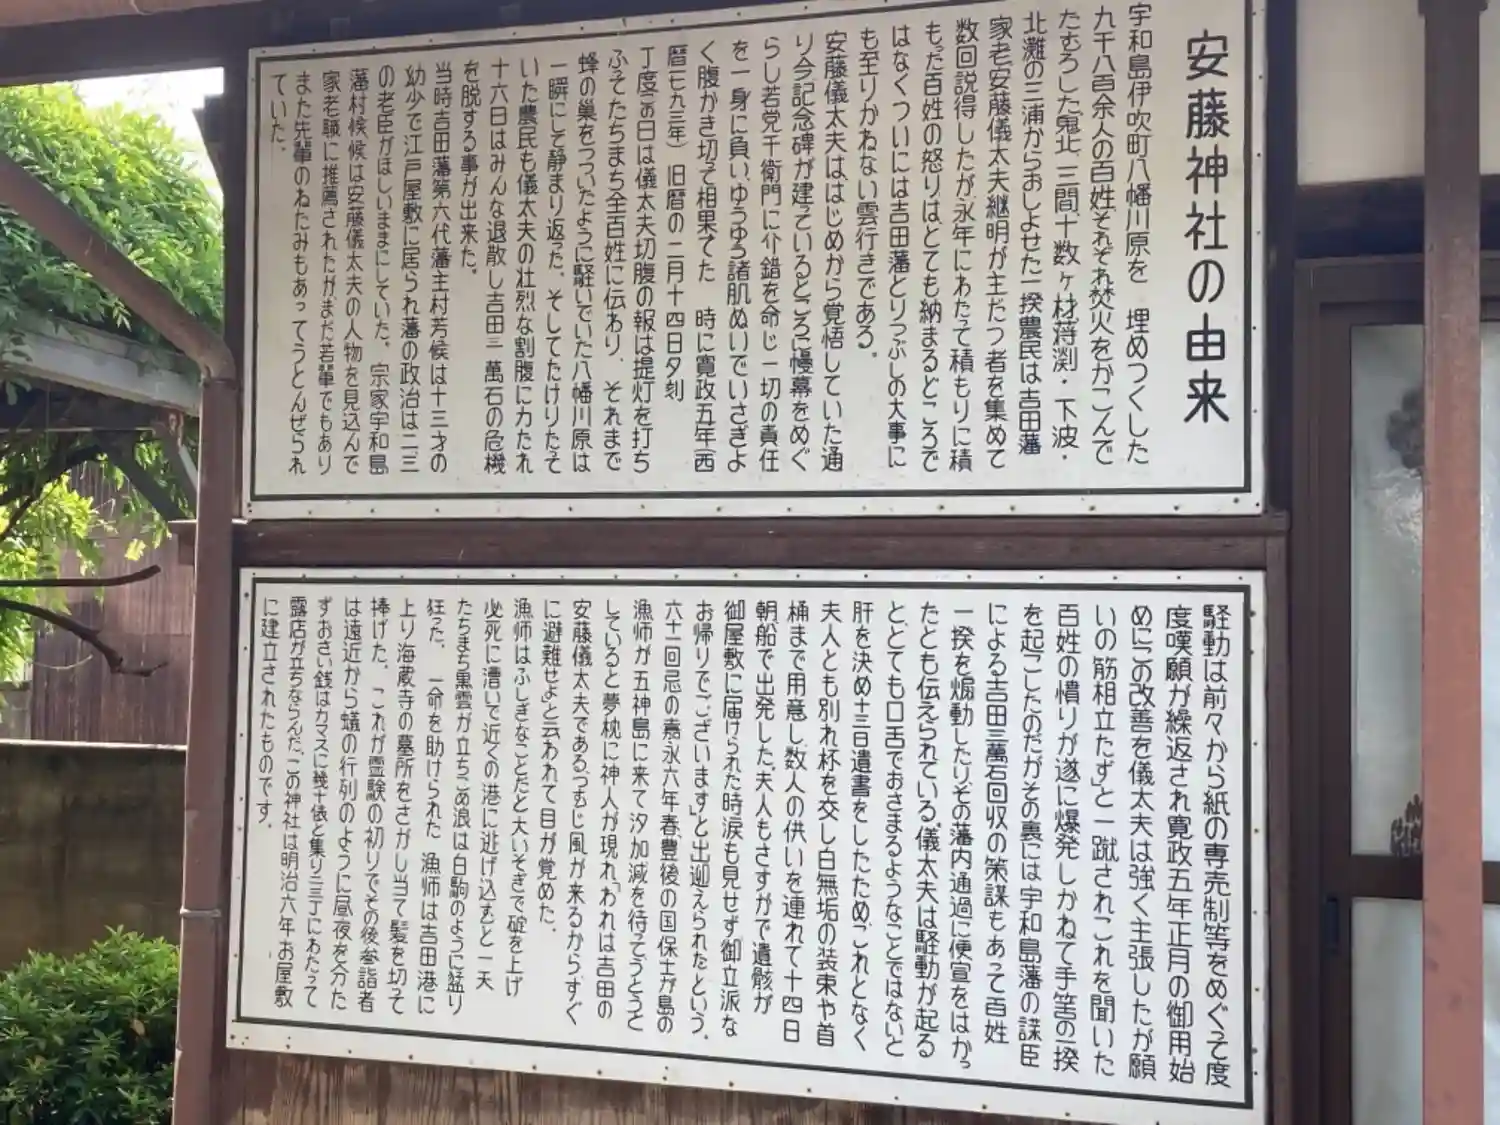 安藤神社の由来
宇和島伊吹町八幡川原を　埋めつくした
九千八百余人の百姓それぞれ焚火をかこんで
たむろした鬼北、三間、十数ヶ村蒋渕・下波・
北灘の三浦からおしよせた一揆農民は吉田藩
家老安藤儀太夫継明が主だつ者を集めて
数回説得したが永年にわたって積もりに積
もった百姓の怒りは、とても納まるところで
はなくついには吉田藩とりつぶしの大事に
も至りかねない雲行きである。
安藤儀太夫ははじめから覚悟していた通
り今記念碑が建っているところに幔幕をめぐ
らし若党千衛門に介錯を命じ一切の責任
を一身に負い、ゆうゆう諸肌ぬいでいさぎよ
く腹かき切って相果てた　時に寛政五年(西
暦一七九三年)旧暦の二月十四日夕刻
丁度この日は儀太夫切腹の報は提灯を打ち
ふってたちまち全百姓に伝わり、それまで
蜂の巣をつついたように騒いでいた八幡川原は
一瞬にして静まり返った。そしてたけりたって
いた農民も儀太夫の壮烈な割腹に力たれ
十六日はみんな退散し吉田三萬石の危機
を脱する事が出来た。
当時吉田藩第六代藩主村芳候は十三才の
幼少で江戸屋敷に居られ藩の政治は二三
の老臣がほしいままにしていた。宗家宇和島
藩村候、候は安藤儀太夫の人物を見込んで
家老職に推薦されたがまだ若輩でもあり
また先輩のねたみもあってうとんぜられ
ていた。
騒動は前々から紙の専売制等をめぐって度
度嘆願が繰返され寛政五年正月の御用始
めにこの改善を儀太夫は強く主張したが願
いの筋相立たず」と一蹴されこれを聞いた
百姓の憤りが遂に爆発しかねて手筈の一揆
を起こしたのだがその裏には宇和島藩の謀臣
による吉田三萬石回収の策謀もあって百姓
一揆を煽動したりその藩内通過に便宜をはかっ
たとも伝えられている。儀太夫は騒動が起る
と、とても口舌でおさまるようなことではないと
肝を決め十三日遺書をしたため、これとなく
夫人とも別れ杯を交し白無垢の装束や首
桶まで用意し数人の供いを連れて十四日
朝船で出発した。夫人もさすがで遺骸が
御屋敷に届けられた時涙も見せず御立派な
お帰りでございます」と出迎えられたという。
六十一回忌の嘉永六年春、豊後の国保土ガ島の
漁師が五神島に来て汐加減を待ってうとうと
していると夢枕に神人が現れ、「われは吉田の
安藤儀太夫である、つむじ風が来るからすぐ
に避難せよ」と云われて目が覚めた。
漁師はふしぎなことだと大いそぎで碇を上げ
必死に漕いで近くの港に逃げ込むと一天
たちまち黒雲が立ちこめ浪は白駒のように猛り
狂った。　一命を助けられた漁師は吉田港に
上り海蔵寺の墓所をさがし当て髪を切って
捧げた。これが霊験の初りでその後参詣者
は遠近から蟻の行列のように昼夜を分た
ずおさい銭はカマスに幾十俵と集り三丁にわたって
露店が立ちならんだ。この神社は明治六年お屋敷
に建立されたものです。